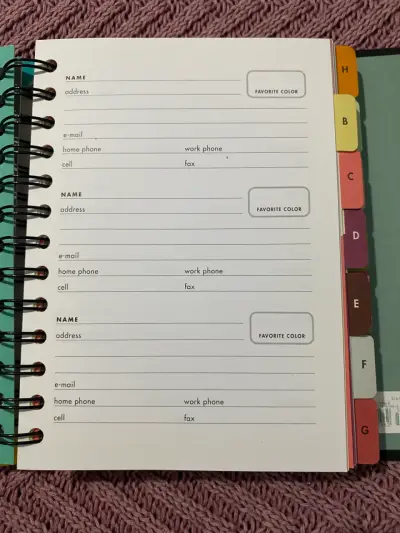 NAME
address
FAVORITE COLOR
e-mail
home phone work phone
cell fax
NAME
address
FAVORITE COLOR
e-mail
home phone work phone
cell fax
NAME
address
FAVORITE COLOR
e-mail
home phone work phone
cell fax
H
B
C
D
E
F
G